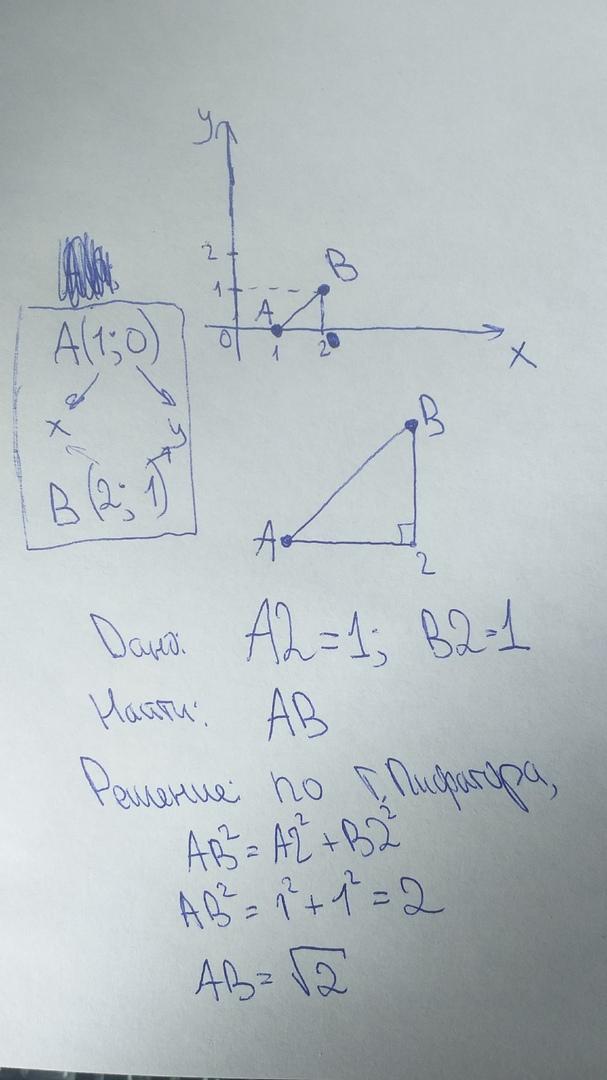 y
2
B
1
A
0 1 2
x
A(1;0)
x y
B(2;1)
B
A 2
Дано: A2=1; B2=1
Найти: AB
Решение: по т. Пифагора,
AB²=A2²+B2²
AB²=1²+1²=2
AB=√2